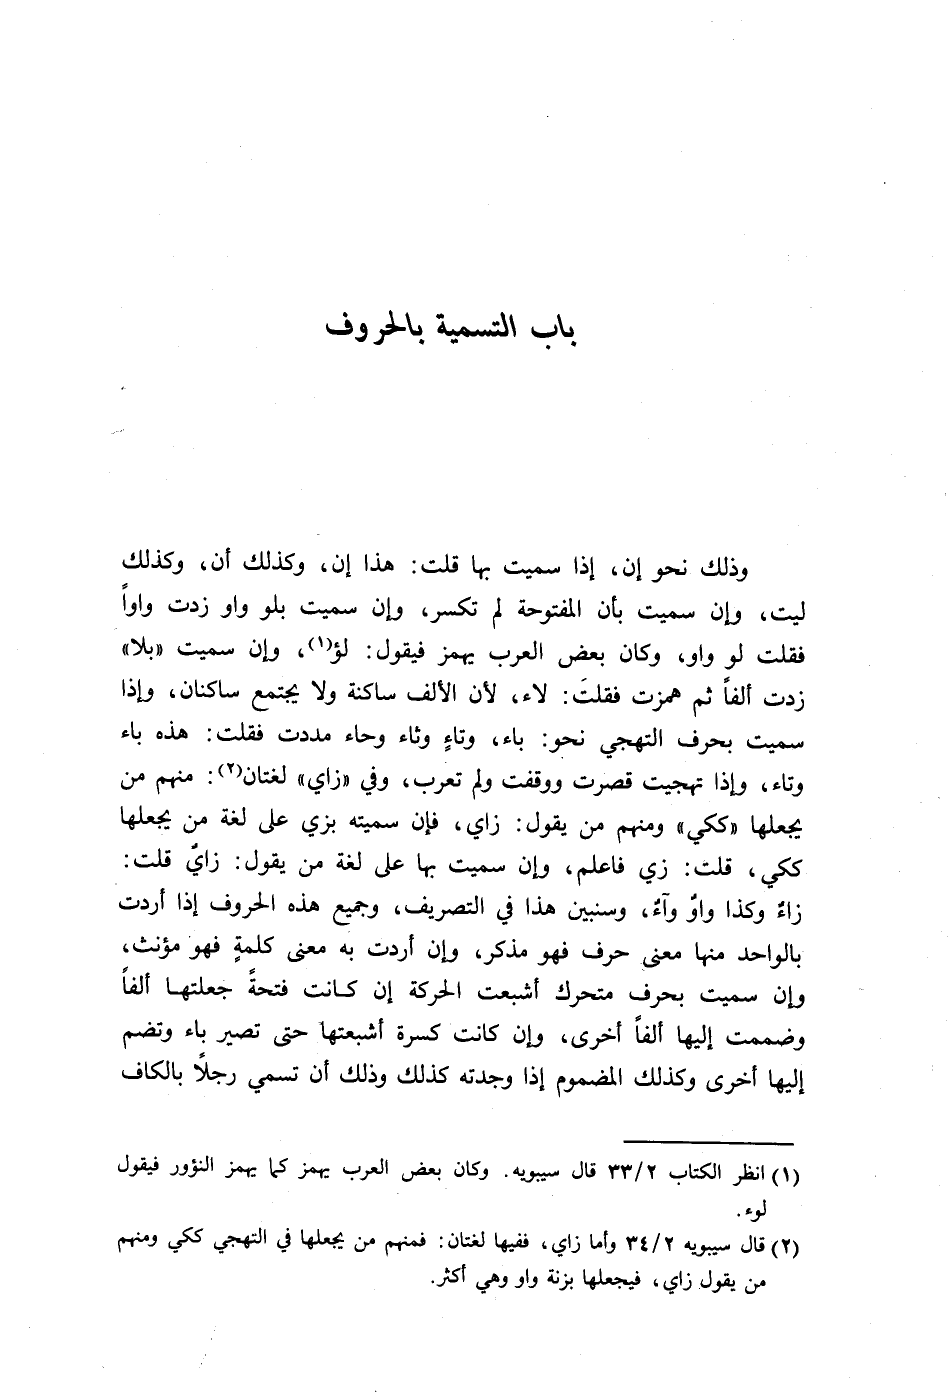 باب التسمية بالحروف
وذلك نحو إن، إذا سميت بها قلت: هذا إن، وكذلك أن، وكذلك
ليت، وإن سميت بأن المفتوحة لم تكسر، وإن سميت بلو واو زدت واواً
فقلت لو واو، وكان بعض العرب يهمز فيقول: لؤ(١)، وإن سميت «بلا»
زدت ألفاً ثم همزت فقلتَ: لاء، لأن الألف ساكنة ولا يجتمع ساكنان، وإذا
سميت بحرف التهجي نحو: باء، وتاءٍ وثاء وحاء مددت فقلت: هذه باء
وتاء، وإذا تهجيت قصرت ووقفت ولم تعرب، وفي «زاي» لغتان(٢): منهم من
يجعلها «ككي» ومنهم من يقول: زاي، فإن سميته بزي على لغة من يجعلها
ككي، قلت: زي فاعلم، وإن سميت بها على لغة من يقول: زايٌ قلت:
زاءٌ وكذا واوٌ وآءٌ، وسنبين هذا في التصريف، وجميع هذه الحروف إذا أردت
بالواحد منها معنى حرف فهو مذكر، وإن أردت به معنى كلمةٍ فهو مؤنث،
وإن سميت بحرف متحرك أشبعت الحركة إن كانت فتحةً جعلتها ألفاً
وضممت إليها ألفاً أخرى، وإن كانت كسرة أشبعتها حتى تصير باء وتضم
إليها أخرى وكذلك المضموم إذا وجدته كذلك وذلك أن تسمي رجلاً بالكاف
(١) انظر الكتاب ٣٣/٢ قال سيبويه. وكان بعض العرب يهمز كما يهمز النؤور فيقول
لوء.
(٢) قال سيبويه ٣٤/٢ وأما زاي، ففيها لغتان: فمنهم من يجعلها في التهجي ككي ومنهم
من يقول زاي، فيجعلها بزنة واو وهي أكثر.